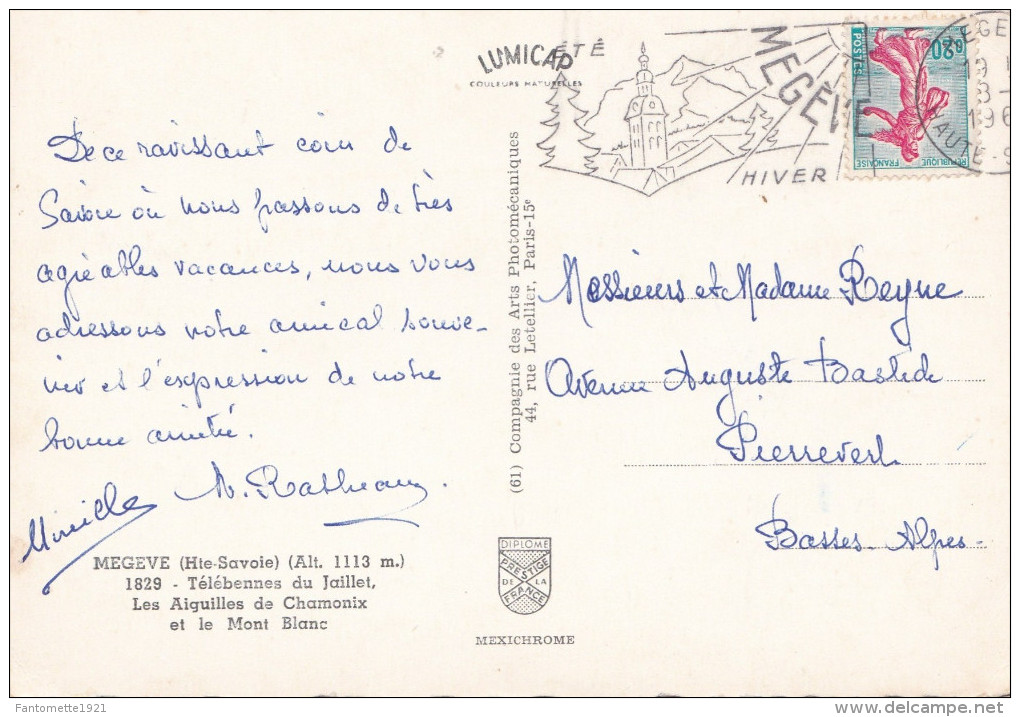 LUMICAP
COULEURS NATURELLES
ÉTÉ
MEGÈVE
HIVER
0,20
POSTES
REPUBLIQUE FRANÇAISE
De ce ravissant coin de
Savoie où nous passons de très
agréables vacances, nous vous
adressons notre amical souve-
nir et l'expression de notre
bonne amitié.
Mireille
MEGEVE (Hte-Savoie) (Alt. 1113 m.)
1829 - Télébennes du Jaillet,
Les Aiguilles de Chamonix
et le Mont Blanc
(61) Compagnie des Arts Photomécaniques
44, rue Letellier, Paris-15e
DIPLOME
PRESTIGE
DE LA
FRANCE
MEXICHROME
Messieurs et Madame Reyne
Avenue Auguste Bastide
Pierrevert
Basses-Alpes-
Fantomette1921